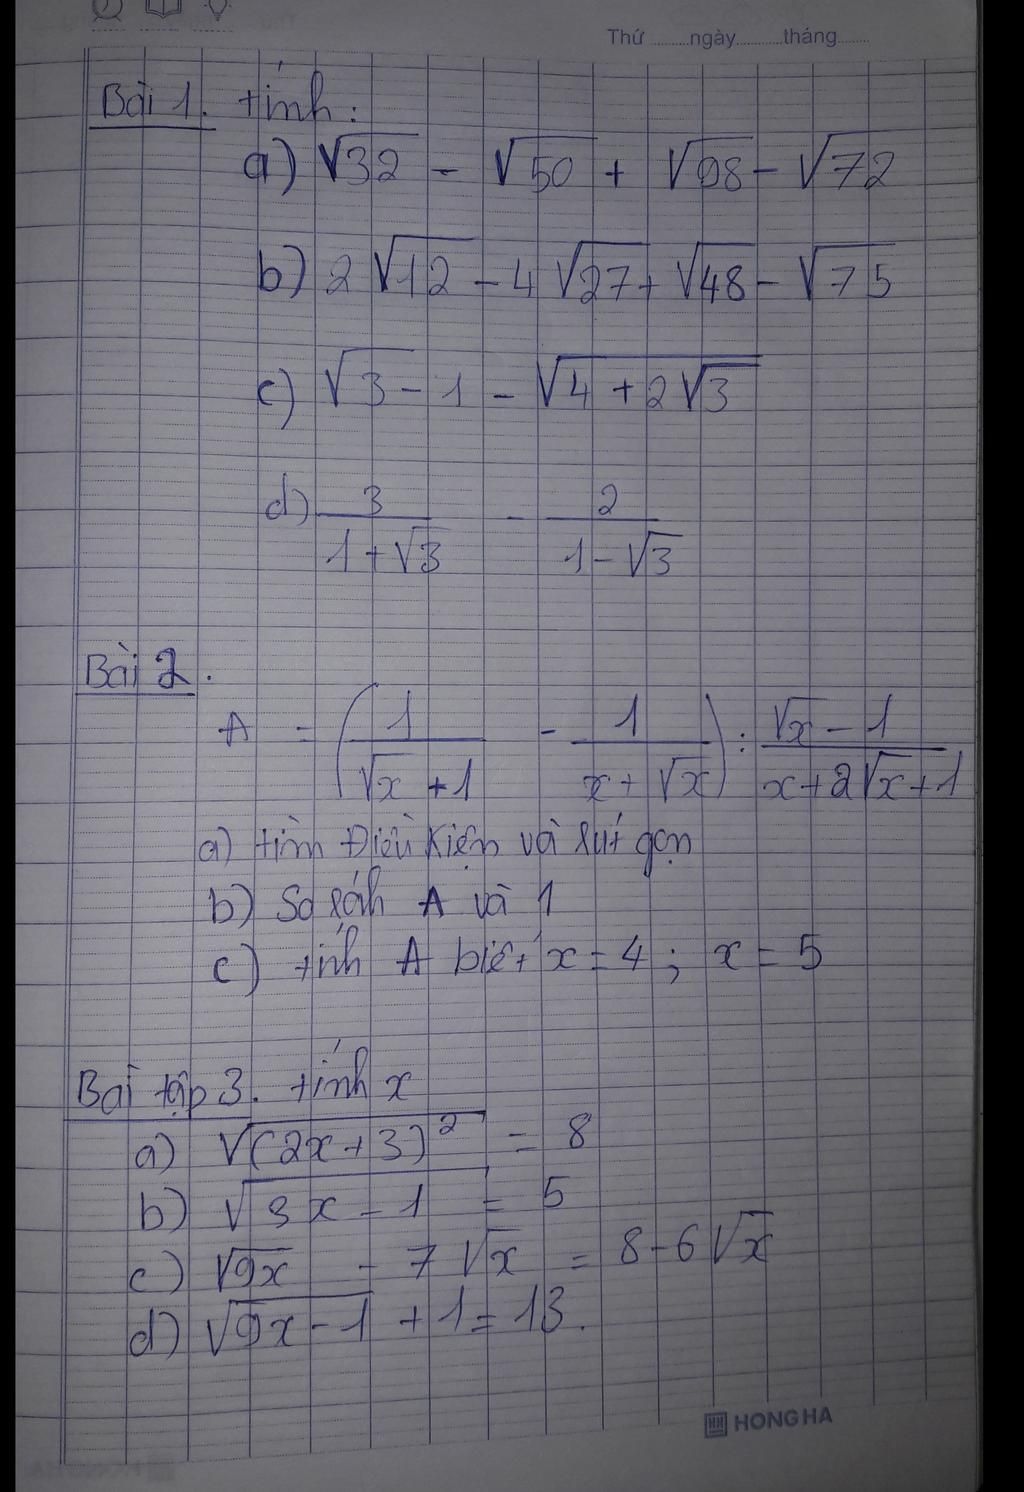 Thứ ........ngày..........tháng.......
Bài 1. tính:
a) √32 - √50 + √98 - √72
b) 2√12 - 4√27 + √48 - √75
c) √3 - 1 - √(4 + 2√3)
d) 3/(1+√3) - 2/(1-√3)
Bài 2.
A = (1/(√x + 1) - 1/(x + √x)) : (√x - 1)/(x + 2√x + 1)
a) tìm Điều kiện và rút gọn
b) So sánh A và 1
c) tính A biết x = 4 ; x = 5
Bài tập 3. tính x
a) √((2x+3)²) = 8
b) √(3x - 1) = 5
c) √9x - 7√x = 8 - 6√x
d) √(9x - 1) + 1 = 13.
HONG HA